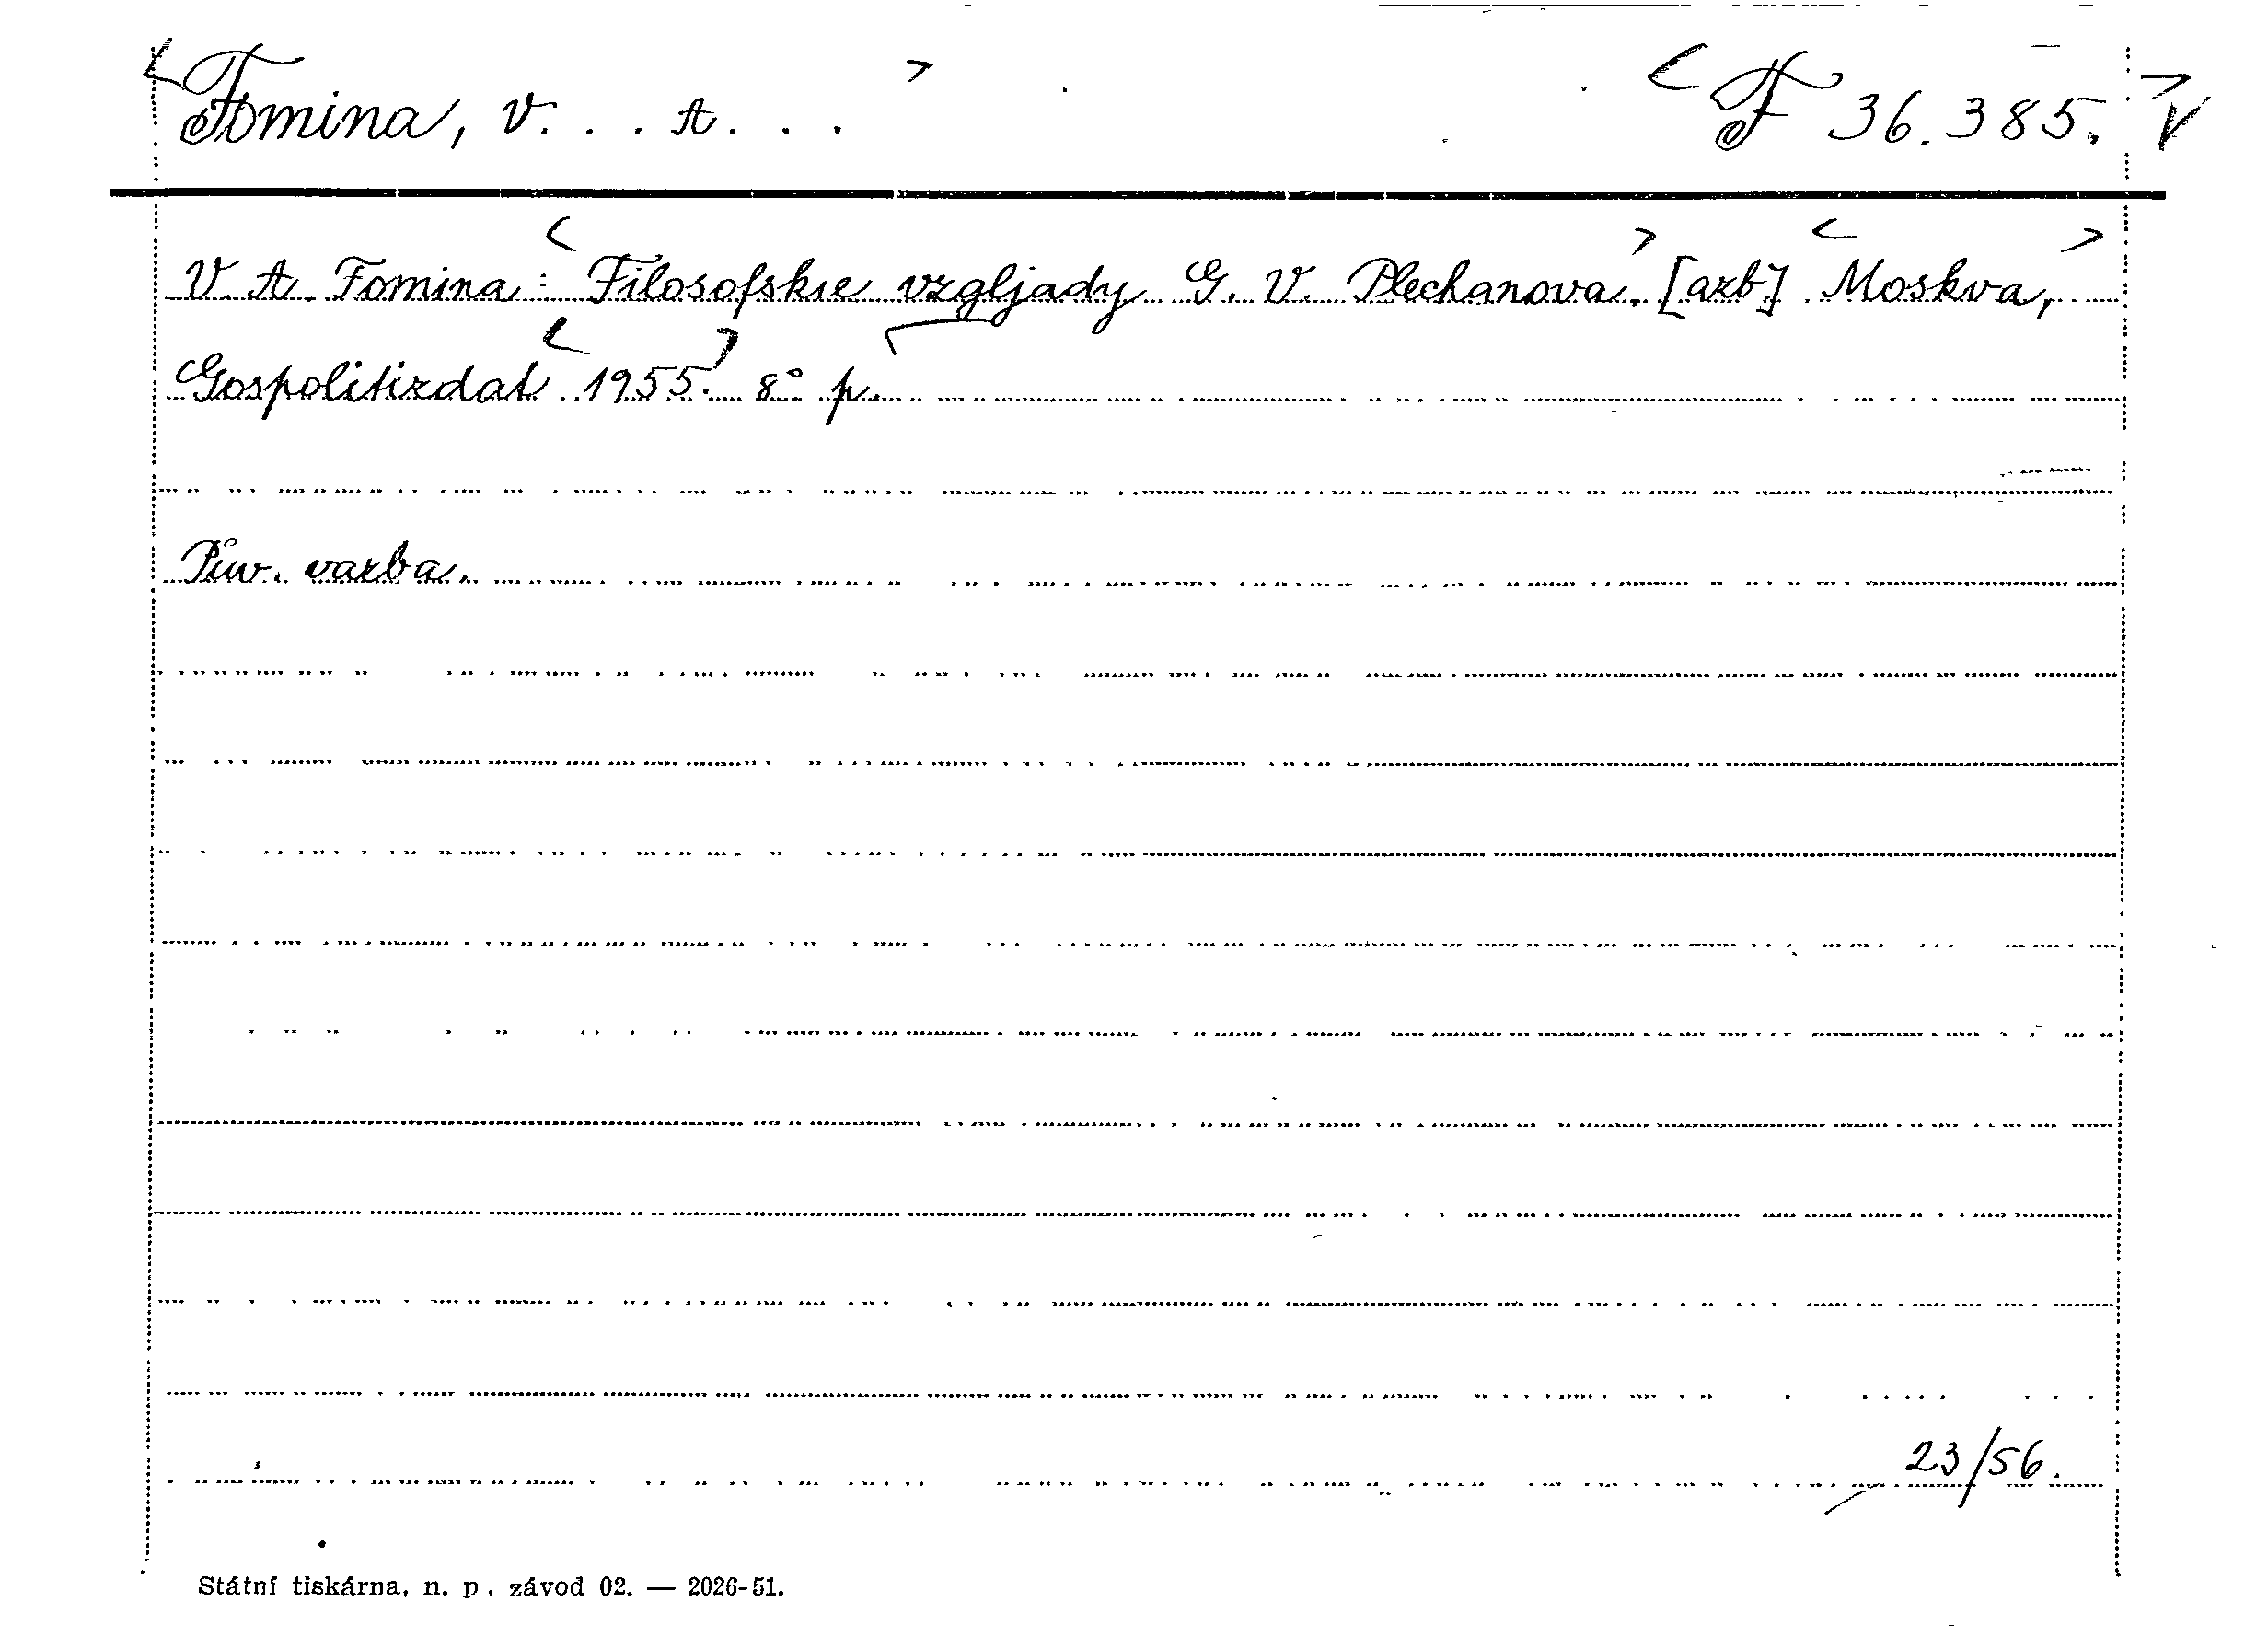 Fomina, V. . . A. . . . F 36.385. V
V. A. Fomina: Filosofskie vzgljady G. V. Plechanova. [azb.] Moskva,
Gospolitizdat 1955. 8° p.
Pův. vazba.
23/56.
Státní tiskárna, n. p., závod 02. — 2026-51.